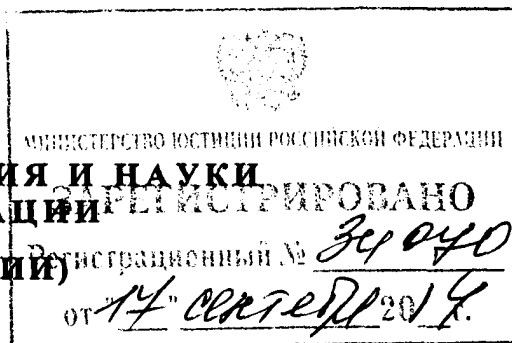 МИНИСТЕРСТВО ЮСТИЦИИ РОССИЙСКОЙ ФЕДЕРАЦИИ
ИЯ И НАУКИ
ЗАРЕГИСТРИРОВАНО
АЦИИ
Регистрационный № 34070
ИИ)
от "17" сентября 2014.